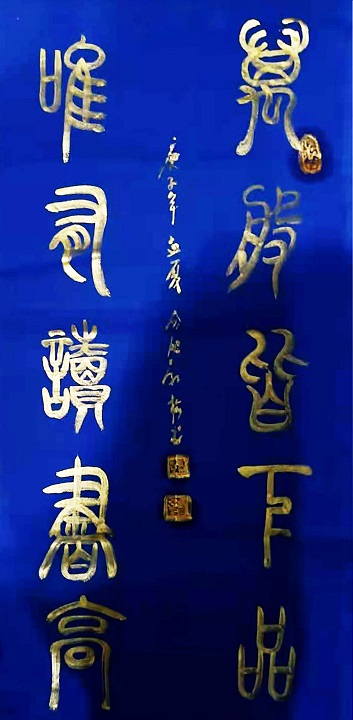 萬般皆下品
唯有讀書高
庚子年
夏